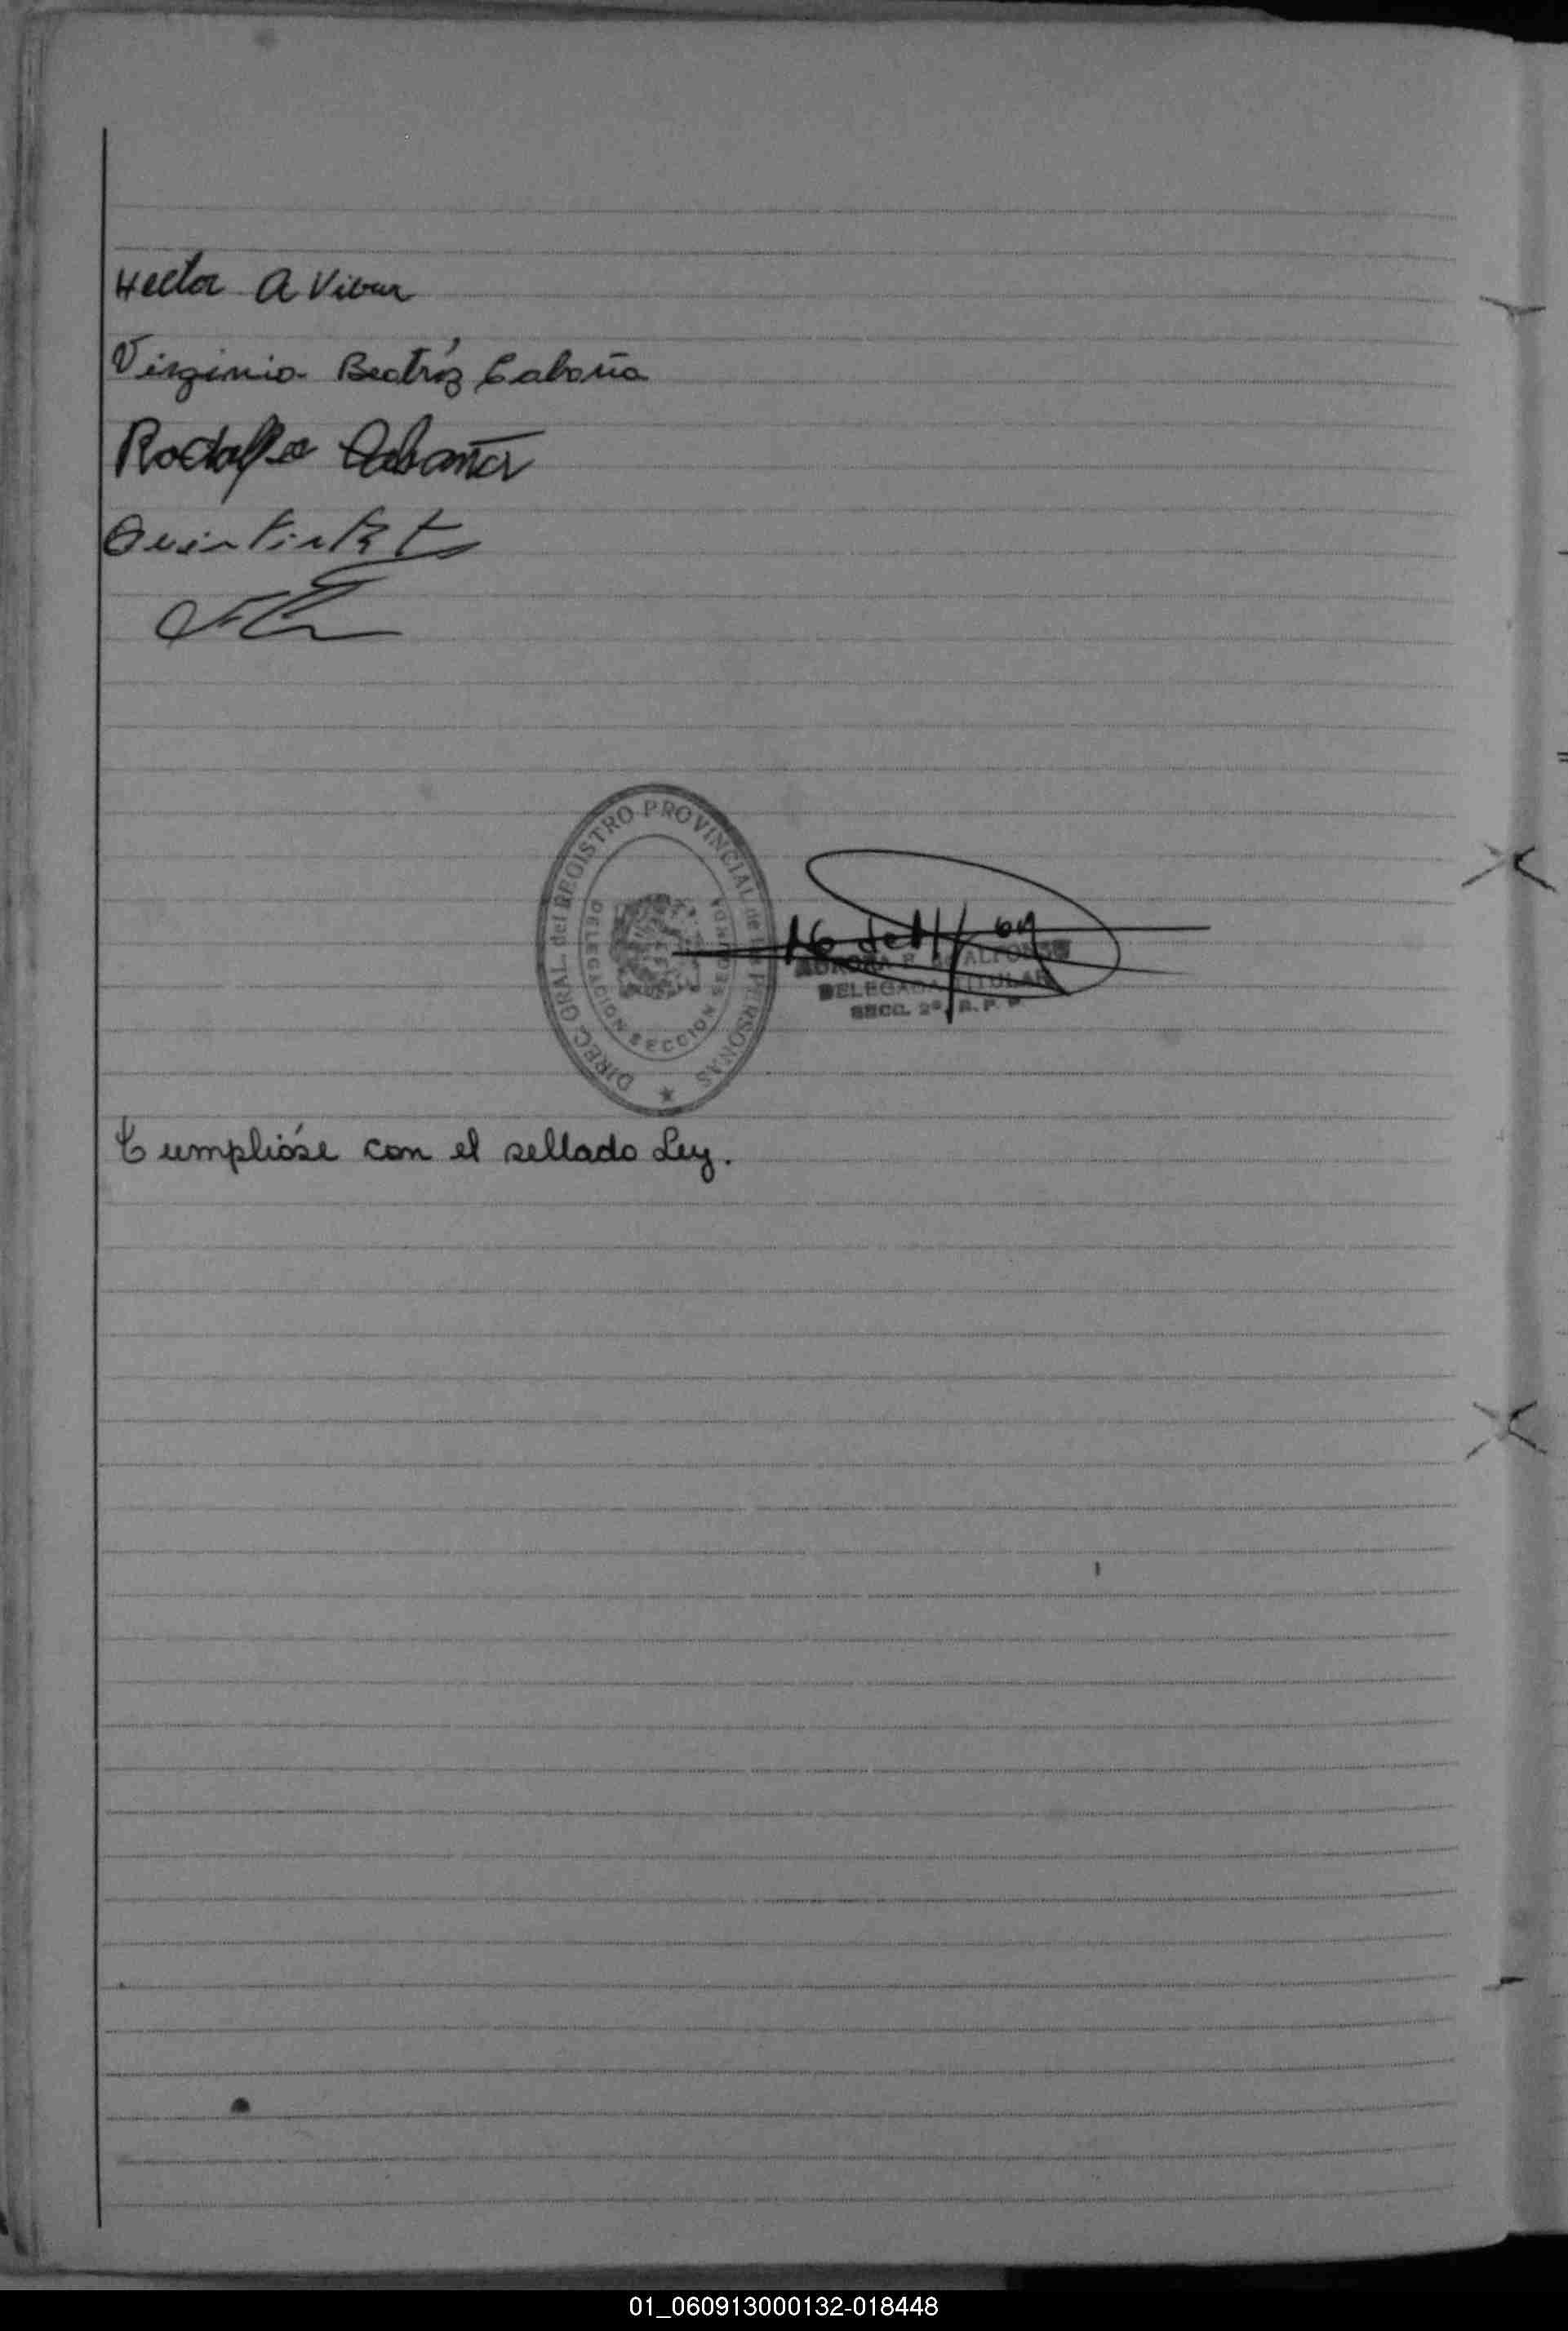 Hector A Vivar
Virginia Beatríz Cabaña
Rodolfo Cabaña
DIREC. GRAL. del REGISTRO PROVINCIAL de las PERSONAS
DELEGACION SECCION SEGUNDA
AURORA F. de ALFONSO
DELEGADA TITULAR
SECC. 2ª. R. P. P.
Cumplióse con el sellado Ley.
01_060913000132-018448